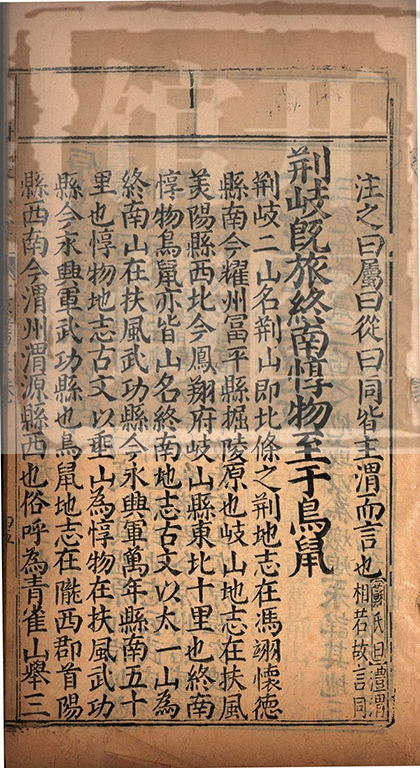 注之曰屬曰從曰同皆主渭而言也蘇氏曰澧渭相若故言同
荆岐既旅終南惇物至于鳥鼠
荆岐二山名荆山即北條之荆地志在馮翊懷德
縣南今耀州冨平縣掘陵原也岐山地志在扶風
羙陽縣西北今鳳翔府岐山縣東北十里也終南
惇物鳥鼠亦皆山名終南地志古文以太一山為
終南山在扶風武功縣今永興軍萬年縣南五十
里也惇物地志古文以垂山為惇物在扶風武功
縣今永興軍武功縣也鳥鼠地志在隴西郡首陽
縣西南今渭州渭源縣西也俗呼為青雀山舉三